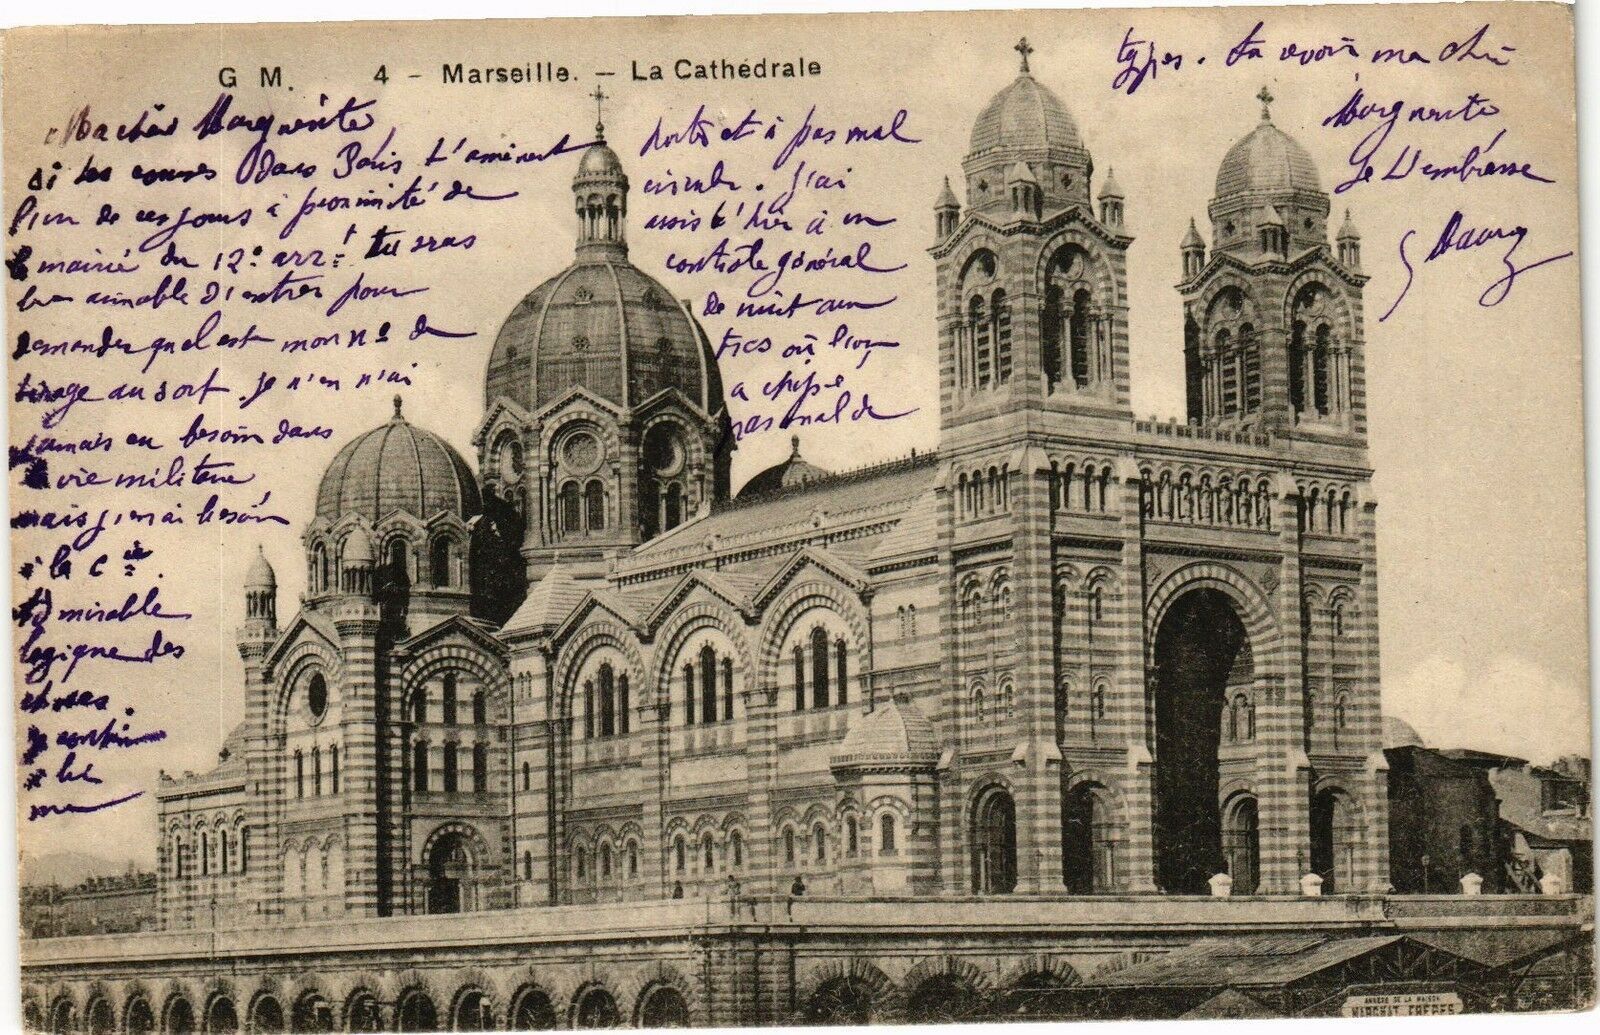 G M. 4 - Marseille. - La Cathédrale
Ma chère Marguerite
si tes courses dans Paris t'amènent
l'un de ces jours à proximité de
la mairie du 12e arrt tu seras
bien aimable d'entrer pour
demander quel est mon no de
tirage au sort. Je n'en n'ai
jamais eu besoin dans
la vie militaire
mais j'en ai besoin
à la Cie
admirable
logique des
choses.
ma
porte et à pas mal
circulé. J'ai
assisté hier à un
contrôle général
de nuit aux
où l'on
a chipé
pas mal de
types. Au revoir ma chère
Marguerite
Je t'embrasse
ANNEXE DE LA MAISON
MARCHAT FRÈRES